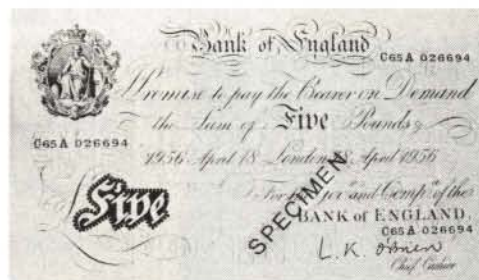 Bank of England
C65A 026694
Promise to pay the Bearer on Demand
the Sum of Five Pounds
C65A 026694
1956 April 18 London 18 April 1956
For the Govr and Compa of the
Five
BANK of ENGLAND.
C65A 026694
SPECIMEN
L. K. O'Brien
Chief Cashier